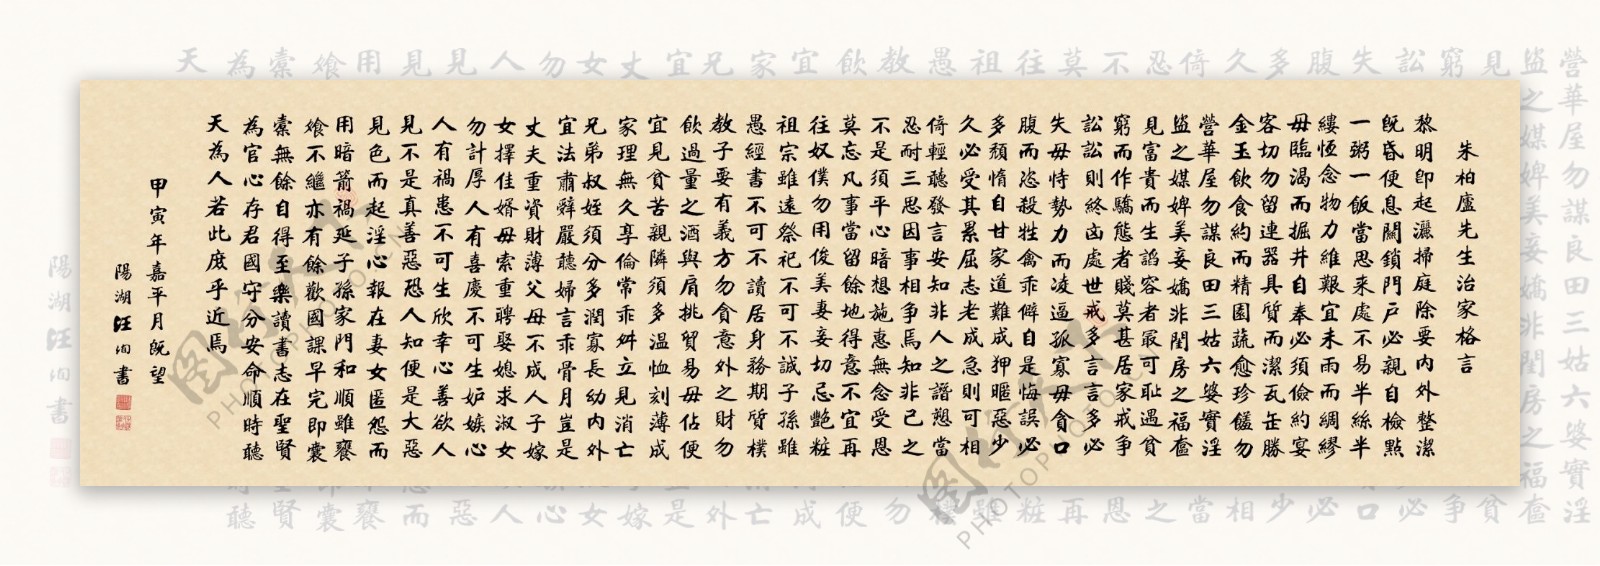 朱柏廬先生治家格言
黎明即起灑掃庭除要內外整潔
既昏便息關鎖門戶必親自檢點
一粥一飯當思來處不易半絲半
縷恆念物力維艱宜未雨而綢繆
毋臨渴而掘井自奉必須儉約宴
客切勿留連器具質而潔瓦缶勝
金玉飲食約而精園蔬愈珍饈勿
營華屋勿謀良田三姑六婆實淫
盜之媒婢美妾嬌非閨房之福奩
見富貴而生諂容者最可恥遇貧
窮而作驕態者賤莫甚居家戒爭
訟訟則終凶處世戒多言言多必
失毋恃勢力而凌逼孤寡毋貪口
腹而恣殺牲禽乖僻自是悔誤必
多頹惰自甘家道難成狎暱惡少
久必受其累屈志老成急則可相
倚輕聽發言安知非人之譖愬當
忍耐三思因事相爭焉知非己之
不是須平心暗想施惠無念受恩
莫忘凡事當留餘地得意不宜再
往奴僕勿用俊美妻妾切忌艷粧
祖宗雖遠祭祀不可不誠子孫雖
愚經書不可不讀居身務期質樸
教子要有義方勿貪意外之財勿
飲過量之酒與肩挑貿易毋佔便
宜見貧苦親隣須多温恤刻薄成
家理無久享倫常乖舛立見消亡
兄弟叔姪須分多潤寡長幼內外
宜法肅辭嚴聽婦言乖骨月豈是
丈夫重資財薄父母不成人子嫁
女擇佳婿毋索重聘娶媳求淑女
勿計厚人有喜慶不可生妒嫉心
人有禍患不可生欣幸心善欲人
見不是真善惡恐人知便是大惡
見色而起淫心報在妻女匿怨而
用暗箭禍延子孫家門和順雖饔
飧不繼亦有餘歡國課早完即囊
橐無餘自得至樂讀書志在聖賢
為官心存君國守分安命順時聽
天為人若此庶乎近焉
甲寅年嘉平月既望
陽湖汪洵書